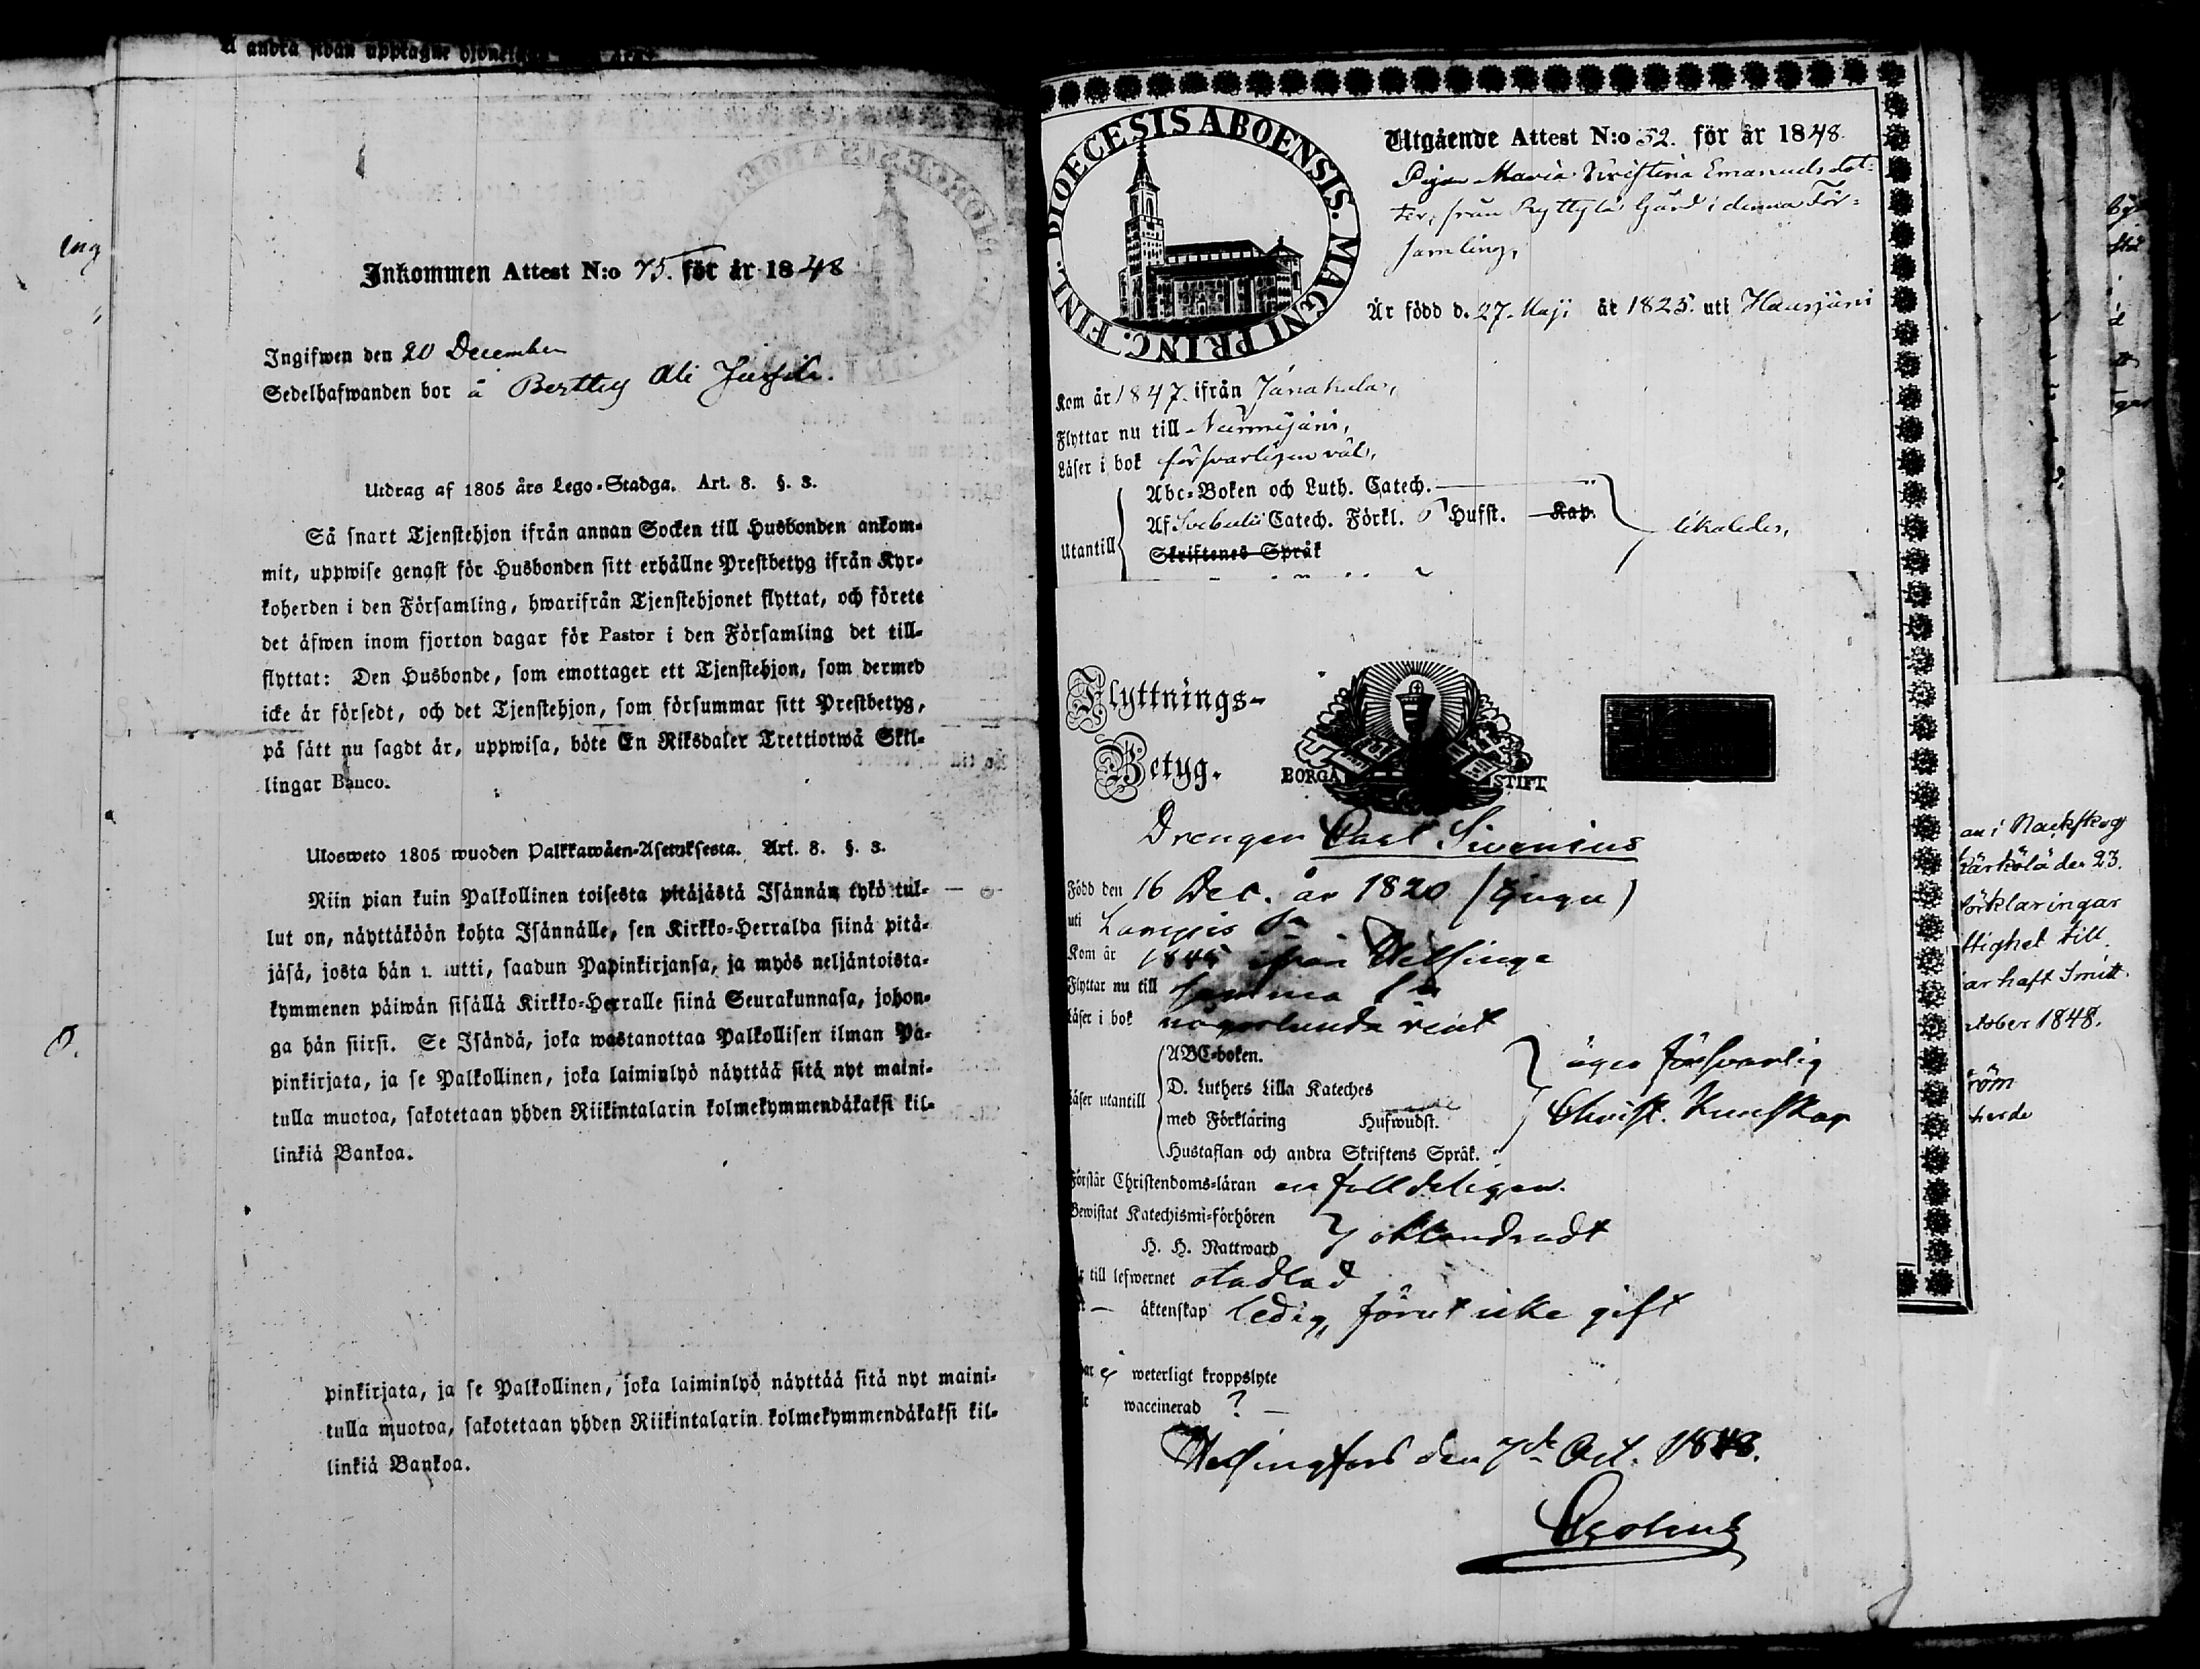 Inkommen Attest N:o 75. för år 1848
Ingifwen den 20 December
Sedelhafwanden bor å
Utdrag af 1805 års Lego-Stadga. Art. 8. §. 3.
Så snart Tjenstehjon ifrån annan Socken till Husbonden ankom-
mit, uppwise genast för Husbonden sitt erhållne Prestbetyg ifrån Kyr-
koherden i den Församling, hwarifrån Tjenstehjonet flyttat, och förete
det äfwen inom fjorton dagar för Pastor i den Församling det till-
flyttat: Den Husbonde, som emottager ett Tjenstehjon, som dermed
icke är försedt, och det Tjenstehjon, som försummar sitt Prestbetyg,
på sätt nu sagdt är, uppwisa, böte En Riksdaler Trettiotwå Skil-
lingar Banco.
Ulosweto 1805 wuoden Palkkawäen-Asetuksesta. Art. 8. §. 3.
Niin pian kuin Palkollinen toisesta pitäjästä Isännän tykö tul-
lut on, näyttäköön kohta Isännälle, sen Kirkko-Herralda siinä pitä-
jäsä, josta hän muutti, saadun Papinkirjansa, ja myös neljäntoista-
kymmenen päiwän sisällä Kirkko-Herralle siinä Seurakunnasa, johon-
ga hän siirsi. Se Isändä, joka wastanottaa Palkollisen ilman Pa-
pinkirjata, ja se Palkollinen, joka laiminlyö näyttää sitä nyt maini-
tulla muotoa, sakotetaan yhden Riikintalarin kolmekymmendäkaksi kil-
linkiä Bankoa.
pinkirjata, ja se Palkollinen, joka laiminlyö näyttää sitä nyt maini-
tulla muotoa, sakotetaan yhden Riikintalarin kolmekymmendäkaksi kil-
linkiä Bankoa.
DIOECESIS ABOENSIS. MAGNI PRINC. FINL.
Utgående Attest N:o 52. för år 1848.
Pigan Maria Kristina Emanuelsdot-
ter, från Ryttylä Gård i denna För-
samling,
Är född d. 27. Maji år 1825. uti Hausjärvi
Kom år 1847. ifrån Janakala,
Flyttar nu till Nurmijärvi,
Läser i bok försvarligen väl,
Utantill
Abc-Boken och Luth. Catech.
Af Svebelii Catech. Förkl. Husst. Kap.
Skriftenes Språk
likaledes,
Flyttnings-
Betyg.
BORGÅ STIFT
Drengen Carl Sivenius
Född den 16 Dec. år 1820
uti Lampis Sn
Kom år 1845 ifrån Helsinge
Flyttar nu till samma Sn
Läser i bok någorlunda rent
Läser utantill
ABC-boken.
D. Luthers Lilla Kateches
med Förklaring Hufwudst.
Hustaflan och andra Skriftens Språk.
äger försvarlig
Christ. Kunskap
Förstår Christendoms-läran enfalldeligen.
Bewistat Katechismi-förhören
H. H. Nattward
oklandradt
Är till lefwernet stadlad
äktenskap ledig, förut icke gift
Har ej weterligt kroppslyte
waccinerad ?
Helsingfors den 7de Oct. 1848.
an i Nackskog
Kärkölä den 23.
förklaringar
ttighet till
ar haft Smitt.
ctober 1848.
röm
herde